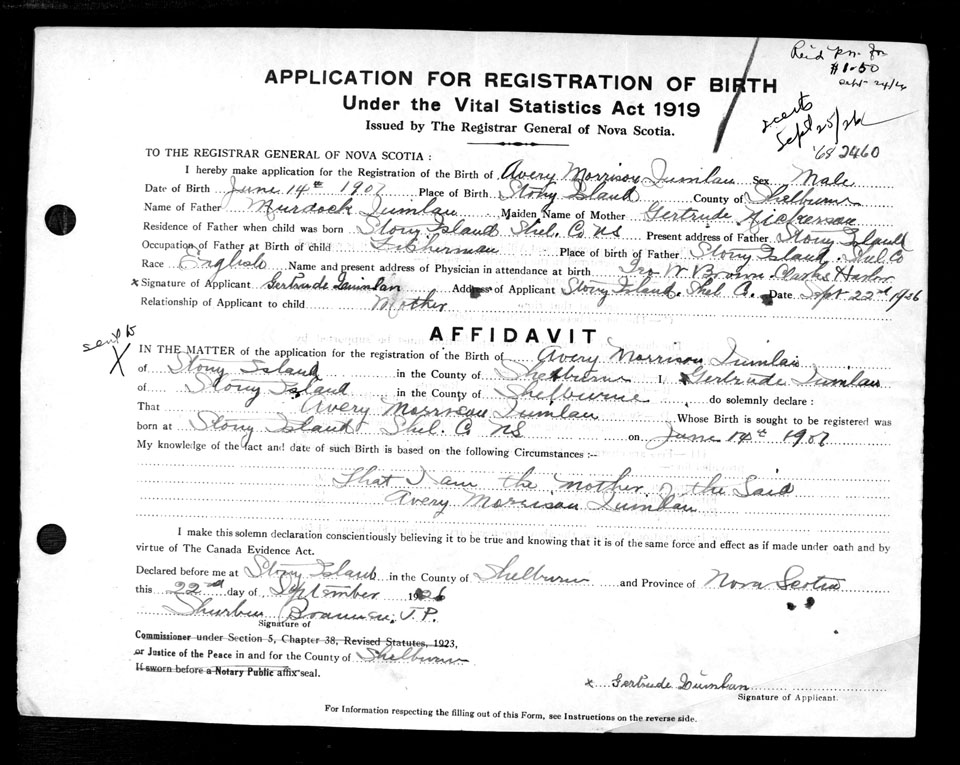 Rec'd pm for
$1.50
Sept 24/26
APPLICATION FOR REGISTRATION OF BIRTH
Under the Vital Statistics Act 1919
Sept 25/26
Issued by The Registrar General of Nova Scotia.
'68 2460
TO THE REGISTRAR GENERAL OF NOVA SCOTIA :
I hereby make application for the Registration of the Birth of Avery Morrison Quinlan Sex Male
Date of Birth June 14th 1907 Place of Birth Stony Island County of Shelburne
Name of Father Murdock Quinlan Maiden Name of Mother Gertrude Nickerson
Residence of Father when child was born Stony Island Shel. Co NS Present address of Father Stony Island
Occupation of Father at Birth of child Fisherman Place of birth of Father Stony Island. Shel Co
Race English Name and present address of Physician in attendance at birth Geo W Brown Clarks Harbor
x Signature of Applicant Gertrude Quinlan Address of Applicant Stony Island. Shel Co. Date Sept 22nd 1926
Relationship of Applicant to child Mother
AFFIDAVIT
X
IN THE MATTER of the application for the registration of the Birth of Avery Morrison Quinlan
of Stony Island in the County of Shelburne I, Gertrude Quinlan
of Stony Island in the County of Shelburne do solemnly declare :
That Avery Morrison Quinlan Whose Birth is sought to be registered was
born at Stony Island Shel. Co NS on June 14th 1907
My knowledge of the fact and date of such Birth is based on the following Circumstances :--
That I am the mother of the Said
Avery Morrison Quinlan
I make this solemn declaration conscientiously believing it to be true and knowing that it is of the same force and effect as if made under oath and by
virtue of The Canada Evidence Act.
Declared before me at Stony Island in the County of Shelburne and Province of Nova Scotia
this 22nd day of September 1926
J.P.
Signature of
Commissioner under Section 5, Chapter 38, Revised Statutes, 1923,
or Justice of the Peace in and for the County of Shelburne
If sworn before a Notary Public affix seal.
x Gertrude Quinlan
Signature of Applicant.
For Information respecting the filling out of this Form, see Instructions on the reverse side.